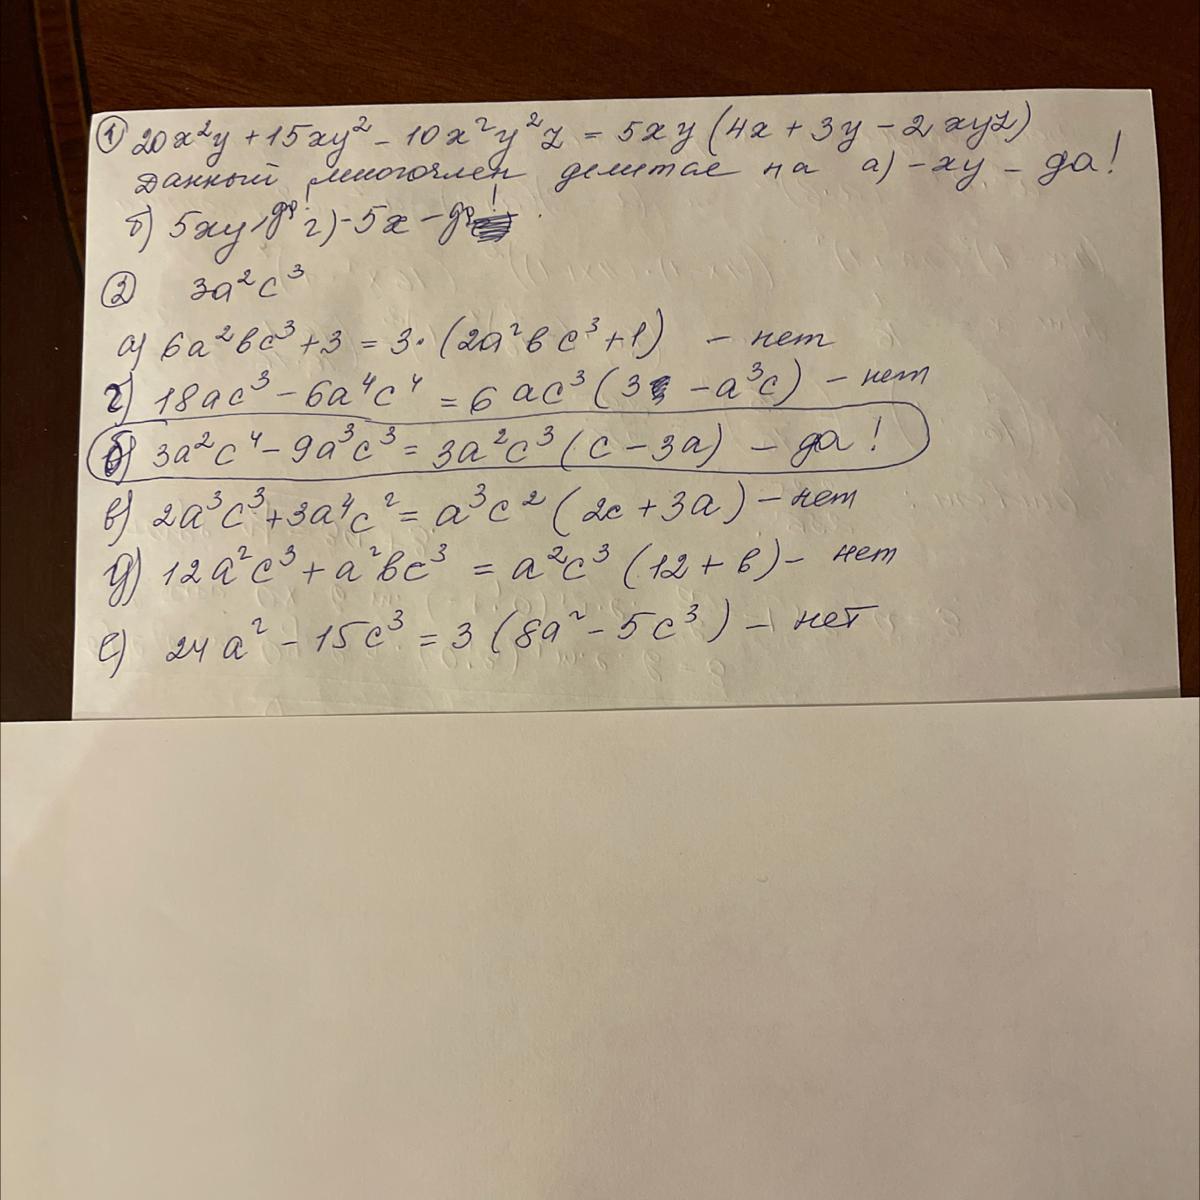 ① 20x²y + 15xy² - 10x²y²z = 5xy (4x + 3y - 2xyz)
Данный многочлен делится на а) -xy - да!
б) 5xy, да! г) -5x - да!
② 3a²c³
а) 6a²bc³ + 3 = 3 · (2a²bc³ + 1) - нет
г) 18ac³ - 6a⁴c⁴ = 6ac³ (3 - a³c) - нет
б) 3a²c⁴ - 9a³c³ = 3a²c³ (c - 3a) - да!
в) 2a³c³ + 3a⁴c² = a³c² (2c + 3a) - нет
д) 12a²c³ + a²bc³ = a²c³ (12 + b) - нет
е) 24a² - 15c³ = 3 (8a² - 5c³) - нет